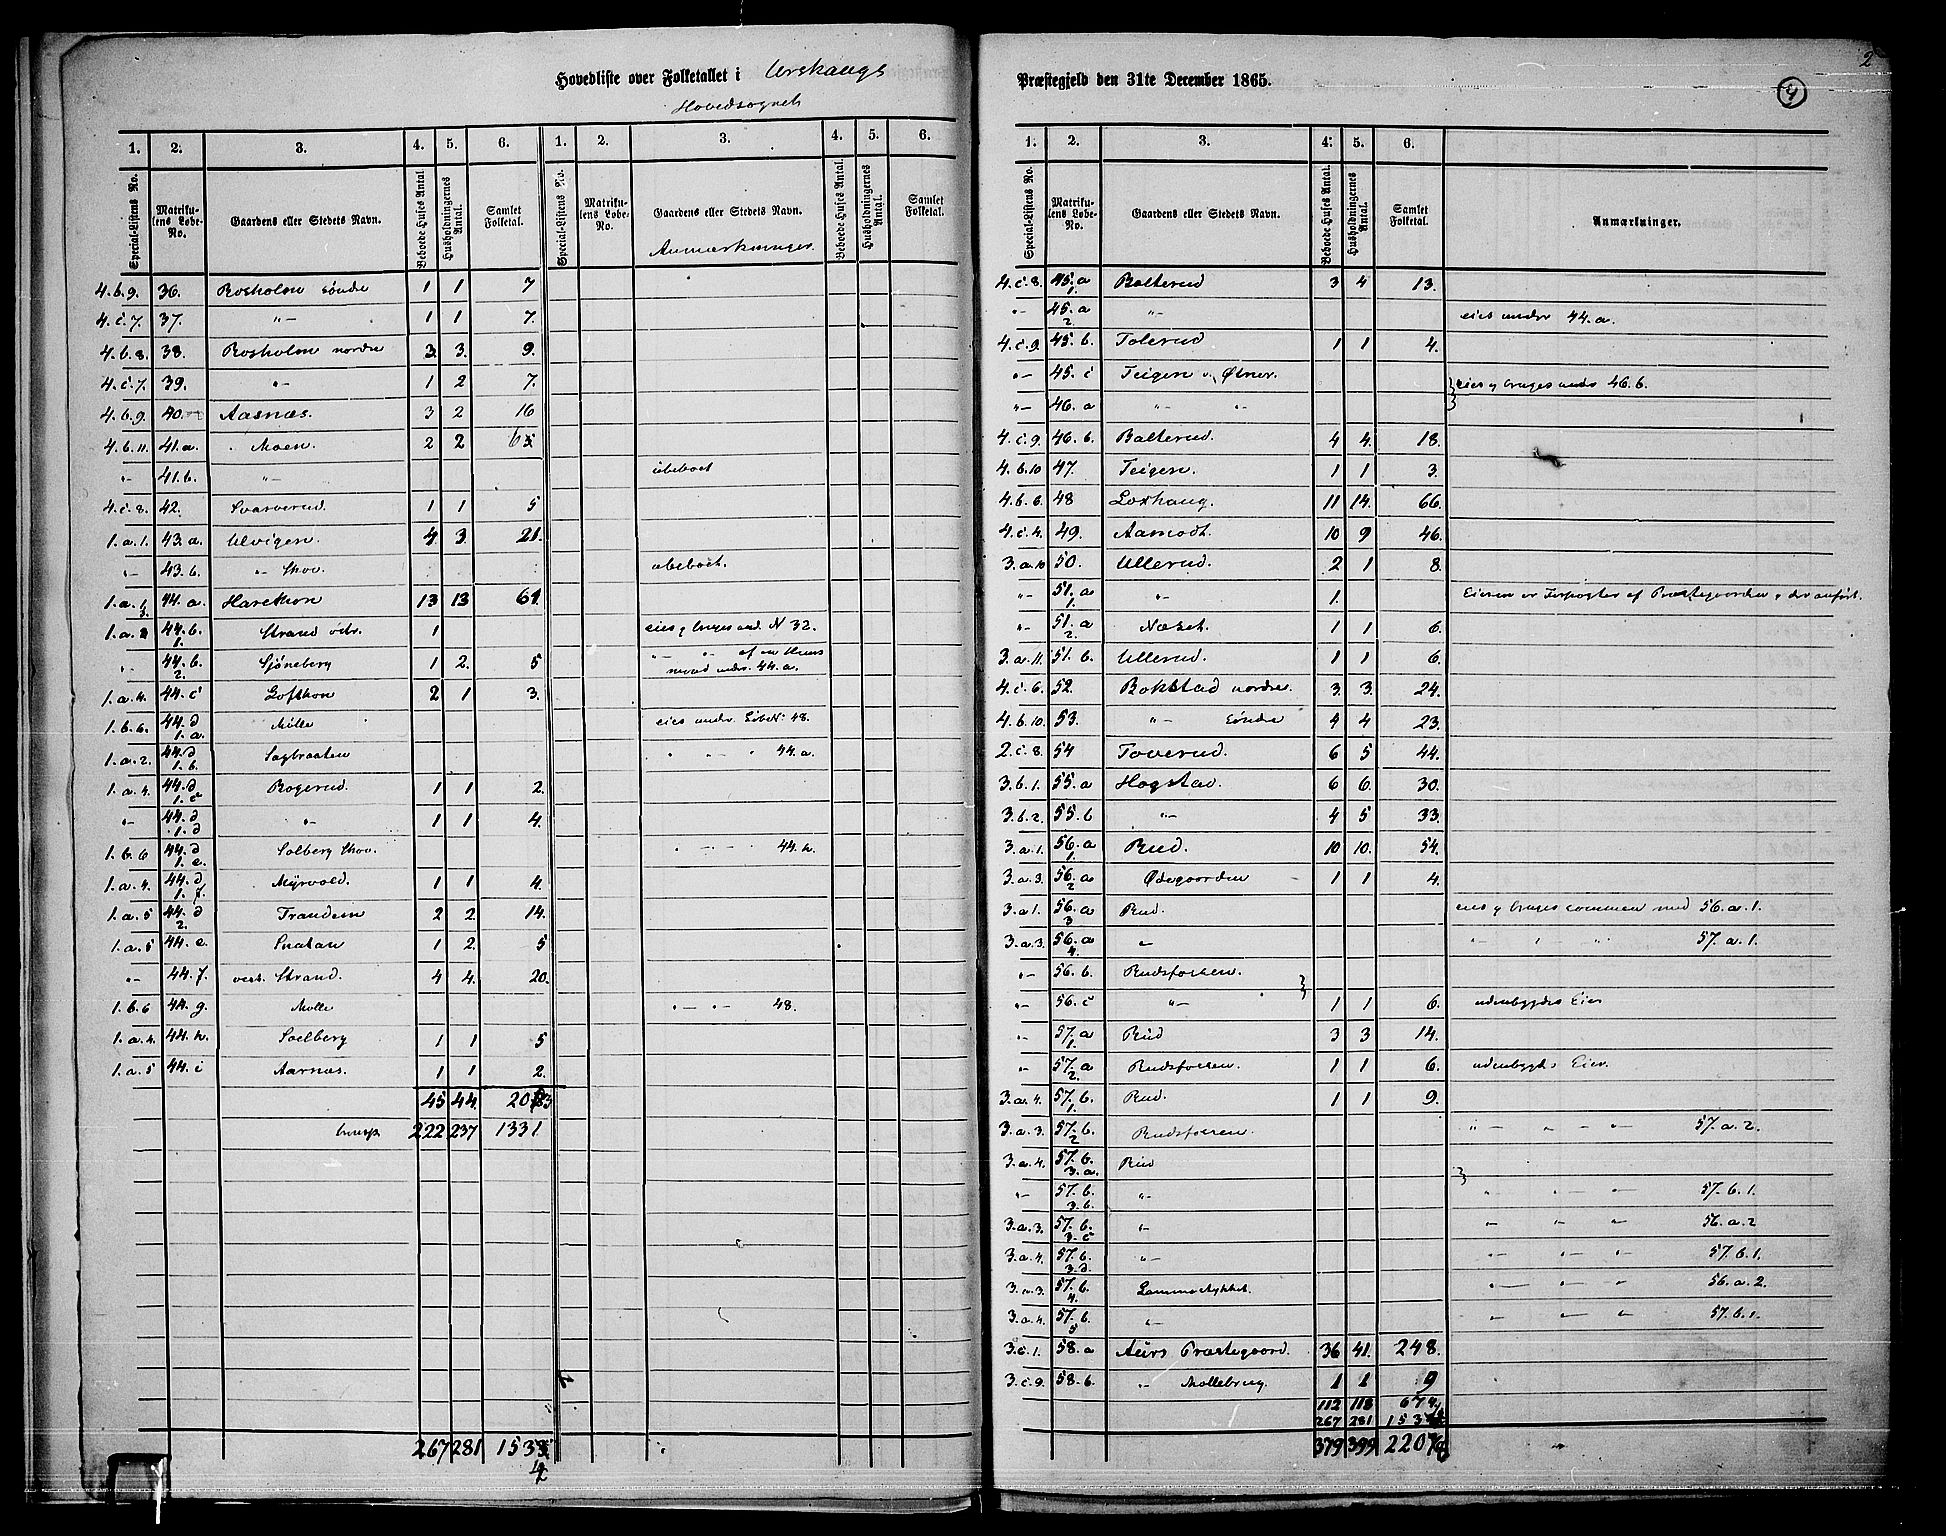 2
4
Hovedliste over Folketallet i Urskougs
Hovedsognet
1. 2. 3. 4. 5. 6. 1. 2. 3. 4. 5. 6.
Special-Listens No. Matrikulens Løbe-No. Gaardens eller Stedets Navn. Beboede Huses Antal. Husholdningernes Antal. Samlet Folketal. Special-Listens No. Matrikulens Løbe-No. Gaardens eller Stedets Navn. Beboede Huses Antal. Husholdningernes Antal. Samlet Folketal.
Anmærkninger.
4.b.9. 36. Rosholm søndre 1 1 7
4.c.7. 37. "- 1 1 7.
4.b.8. 38. Rosholm nordre 3. 3. 9.
4.c.7. 39. "- 1 2 7.
4.b.9. 40. Aasnæs. 3 2 16
4.b.11. 41.a. Moen. 2 2 6
"- 41.b. "- ubeboet
4.c.8. 42. Svarverud. 1 1 5
1.a.1. 43.a. Ulvigen. 4 3. 21.
"- 43.b. "- Skov. ubeboet.
1.a.1/3. 44.a. Harethon 13 13 61.
1.a. 44.b.1. Strand østr. 1 eies og bruges und. N 32.
"- 44.b.2. Sjøneberg 1 2. 5 "- "- af en Huusmand under 44.a.
1.a.4. 44.c Lofthon 2 1 3.
1.b.6. 44.d 1.a. Mølle eies under LøbeNo 48.
1.a.2. 44.d 1.b. Sagbraaten " "- " 44.a.
1.a.4. 44.d 1.c Bøgerud. 1 1 2.
"- 44.d 1.d "- 1 1 4.
1.b.6 44.d 1.e. Solberg Skov. "- "- 44.h.
1.a.4. 44.d 1.f. Myrvold. 1 1 4.
1.a.5 44.d 2. Trandem 2 2. 14.
1.a.5 44.e. Snatan 1 2. 5
"- 44.f. vest. Strand. 4 4. 20.
1.b.6 44.g. Mølle "- "- 48.
1.a.4. 44.h. Soelberg 1 1 5
1.a.5 44.i Aarnæs. 1 1 2.
45 44. 203
222 237 1331
267 281 1534
Præstegjeld den 31te December 1865.
1. 2. 3. 4. 5. 6.
Special-Listens No. Matrikulens Løbe-No. Gaardens eller Stedets Navn. Beboede Huses Antal. Husholdningernes Antal. Samlet Folketal. Anmærkninger.
4.c.8. 45.a 1. Bolterud 3 4 13.
"- 45.a 2. "- eies under 44.a.
4.c.9. 45.b. Tolerud 1 1 4.
"- 45.c Teigen v. Øtner.
"- 46.a "- "- eies og bruges under 46.b.
4.c.9. 46.b. Bolterud. 4 4. 18.
4.b.10 47. Teigen. 1 1 3.
4.b.6. 48 Loxhaug. 11 14. 66.
4.c.4. 49. Aamodt. 10 9 46.
3.a.10 50. Ullerud. 2 1 8.
"- 51.a 1. "- 1. Eieren er Forpagter af Præstegaarden og der anført.
"- 51.a 2. Næset. 1 1 6.
3.a.11. 51.b. Ullerud. 1 1 6.
4.c.6. 52. Bokstad nordre. 3. 3. 24.
4.b.10. 53. "- Søndre 4 4 23.
2.c.8. 54 Toverud. 6 5 44.
3.b.1. 55.a Hogstad. 6 6. 30.
3.b.2. 55.b "- 4 5 33.
3.a.1. 56.a 1. Rud. 10 10. 54.
3.a.3. 56.a 2 Ødegaarden 1 1 4.
3.a.1. 56.a 3 Rud. eies og bruges sammen med 56.a.1.
3.a.3. 56.a 4. "- "- "- "- 57.a.1.
"- 56.b. Rudsfossen.
"- 56.c "- 1 1 6. udenbygds Eier
"- 57.a 1. Rud 3 3 14.
"- 57.a 2. Rudsfossen. 1 1 6. udenbygds Eier.
3.a.4. 57.b. 1. Rud. 1 1 9.
3.a.3. 57.b. 2 Rudsfossen. "- "- "- 57.a.2.
3.a.4. 57.b. 3.a. Rud
"- 57.b. 3.b. "- "- "- "- 57.b.1.
3.a.3. 57.b. 3.c "- "- "- "- 56.a.2
3.a.4. 57.b. 3.d. "- "- "- "- 57.b.1.
3.a.3. 57.b. 4. Lammestykket. "- "- "- 56.a.2.
3.a.4. 57.b. 5 "- "- "- "- 57.b.1.
3.c.1. 58.a Aurs Præstegaard. 36 41. 248.
3.c.9. 58.b "- Møllebrug. 1 1 9
112 118 674
267 281 153
379 399 220